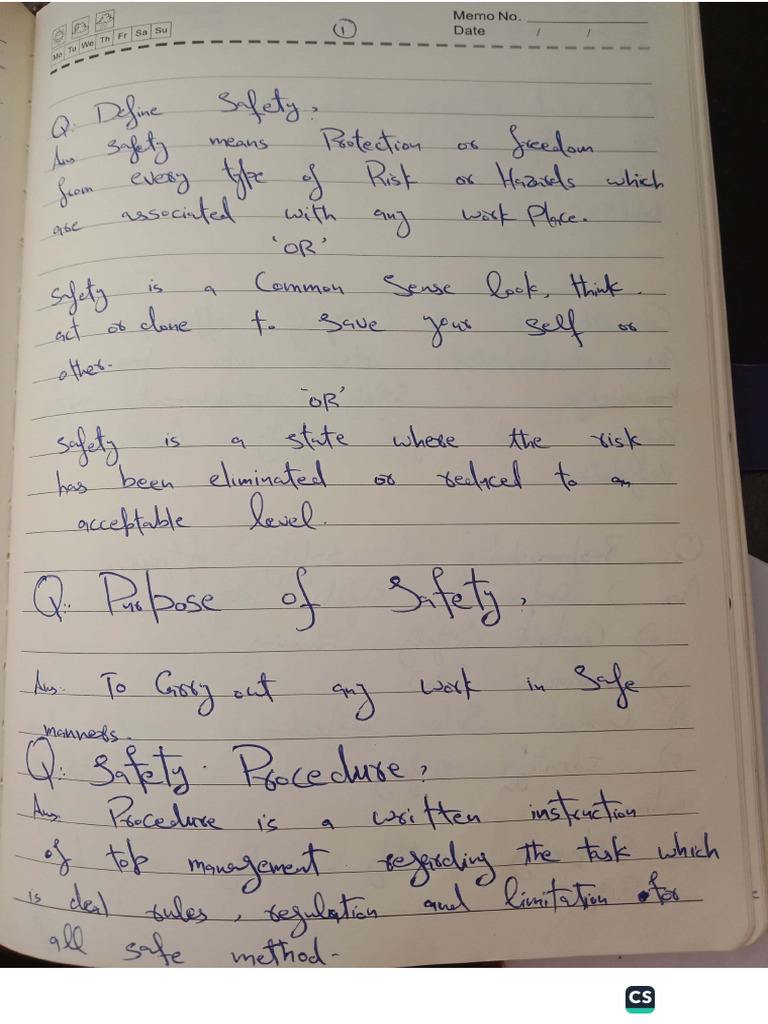 Memo No.
Mo Tu We Th Fr Sa Su
1
Date / /
Q: Define Safety,
Ans Safety means Protection or freedom
from every type of Risk or Hazards which
are associated with any work Place.
'OR'
Safety is a Common Sense look, think
act or done to save your self or
other.
'OR'
Safety is a state where the risk
has been eliminated or reduced to an
acceptable level.
Q: Purpose of Safety,
Ans: To Carry out any work in Safe
manners.
Q: Safety. Procedure?
Ans: Procedure is a written instruction
of top management regarding the task which
is deal rules, regulation and limitation for
all safe method.
CS